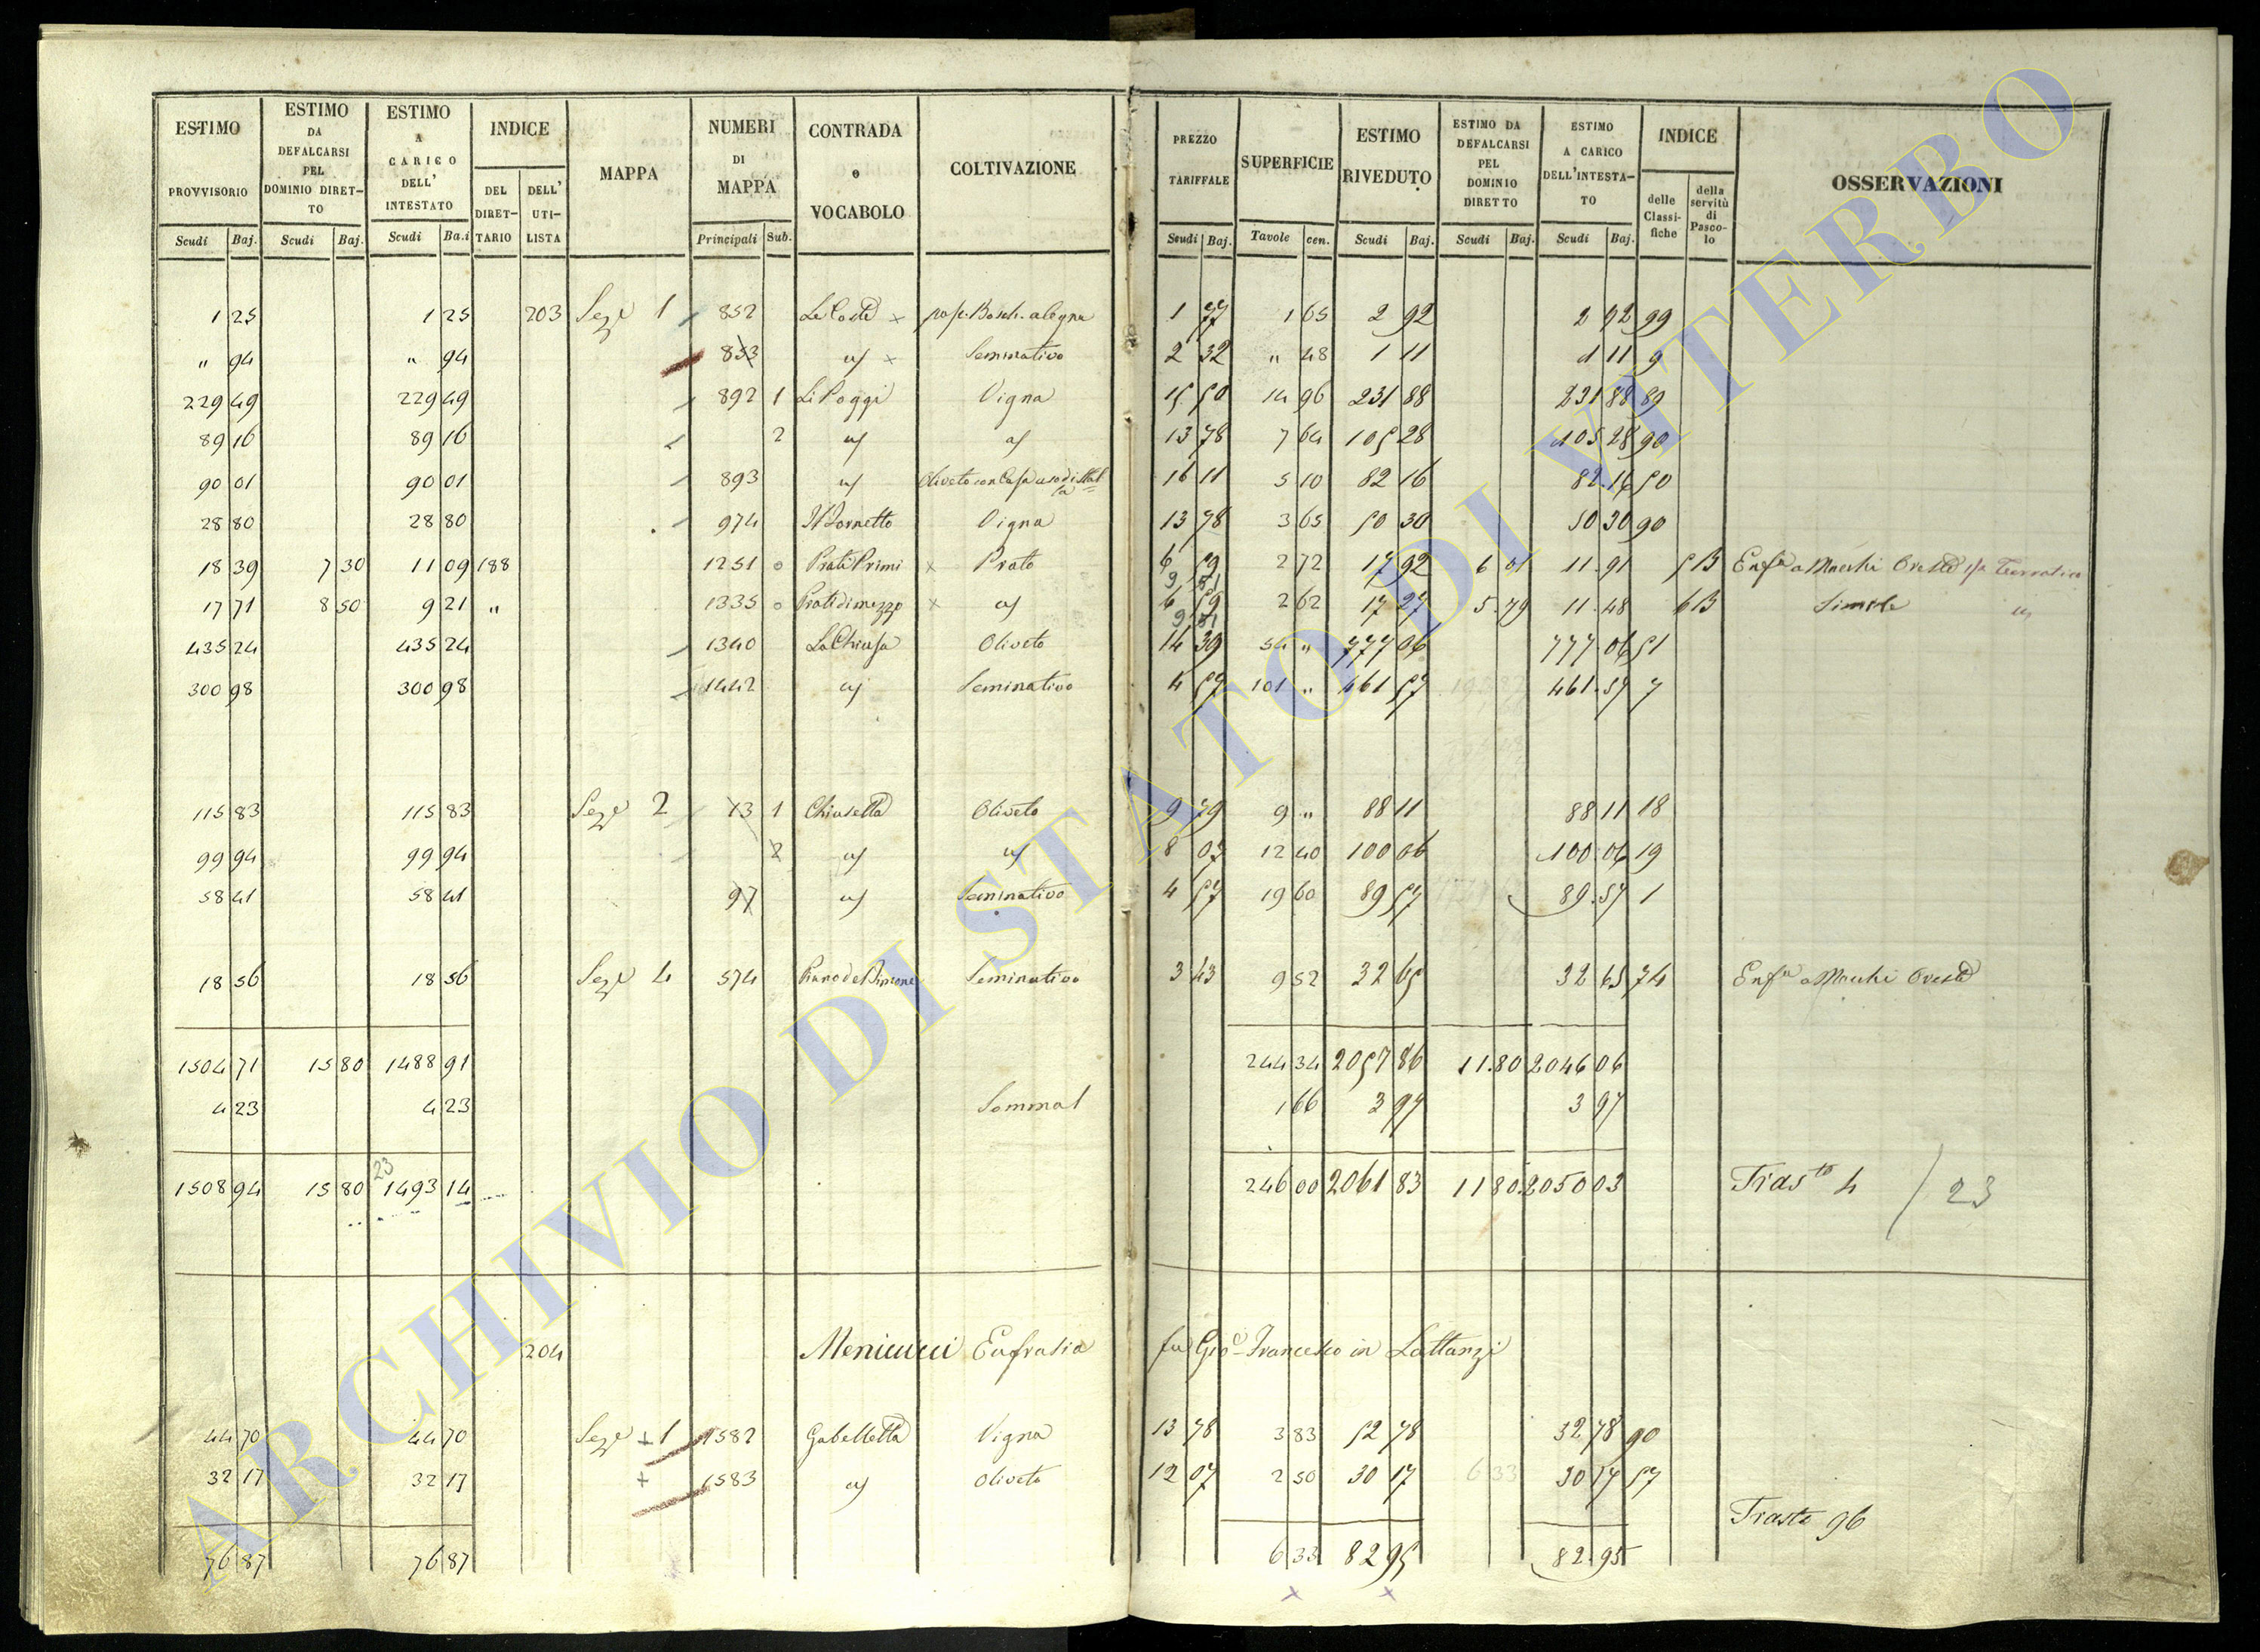 ESTIMO PROVVISORIO Scudi Baj. ESTIMO DA DEFALCARSI PEL DOMINIO DIRETTO Scudi Baj. ESTIMO A CARICO DELL' INTESTATO Scudi Ba.i INDICE DEL DIRETTARIO DELL' UTILISTA MAPPA NUMERI DI MAPPA Principali Sub. CONTRADA o VOCABOLO COLTIVAZIONE PREZZO TARIFFALE Scudi Baj. SUPERFICIE Tavole cen. ESTIMO RIVEDUTO Scudi Baj. ESTIMO DA DEFALCARSI PEL DOMINIO DIRETTO Scudi Baj. ESTIMO A CARICO DELL'INTESTATO Scudi Baj. INDICE delle Classifiche della servitù di Pascolo OSSERVAZIONI
1 25 1 25 203 Seze 1 852 Le Coste x 1 77 1 65 2 92 2 92 99
" 94 " 94 853 x Seminativo 2 32 " 48 1 11 1 11 9
229 49 229 49 892 1 Li Poggi Vigna 15 50 14 96 231 88 231 88 89
89 16 89 16 2 13 78 7 64 105 28 105 28 90
90 01 90 01 893 Oliveto con Casa uso di 16 11 5 10 82 16 82 16 50
28 80 28 80 974 Il Vigna 13 78 3 65 50 30 50 30 90
18 39 7 30 11 09 188 1251 o Prati Primi x Prato 6 59 9 51 2 72 17 92 6 01 11 91 5 B Enfa a Macchi Oreste
17 71 8 50 9 21 " 1335 o Prati di mezzo x 6 59 9 51 2 62 17 27 5.79 11.48 6 B Simile
435 24 435 24 1340 La Chiusa Oliveto 14 39 54 " 777 06 777.06 51
300 98 300 98 1442 Seminativo 4 57 101 " 461 57 461.57 7
115 83 115 83 Seze 2 13 1 Chiusetta Oliveto 9 79 9 " 88 11 88 11 18
99 94 99 94 2 8 07 12 40 100 06 100.06 19
58 41 58 41 97 Seminativo 4 57 19 60 89 57 89.57 1
18 56 18 56 Seze 4 574 Seminativo 3 43 9 52 32 65 32 65 74 Enfa a Macchi Oreste
1504 71 15 80 1488 91 244 34 2057 86 11.80 2046 06
4 23 4 23 Sommal 1 66 3 97 3 97
23
1508 94 15 80 1493 14 246 00 2061 83 11 80 2050 03 Trasto 4 / 23
204 Menicucci Eufrasia fu Gio Francesco in Lattanzi
44 70 44 70 Seze + 1 1582 Gabelletta Vigna 13 78 3 83 52 78 52 78 90
32 17 32 17 + 1583 Oliveto 12 07 2 50 30 17 6 33 30 17 57
Trasto 96
76 87 76 87 6 33 82 95 82.95
x x
ARCHIVIO DI STATO DI VITERBO